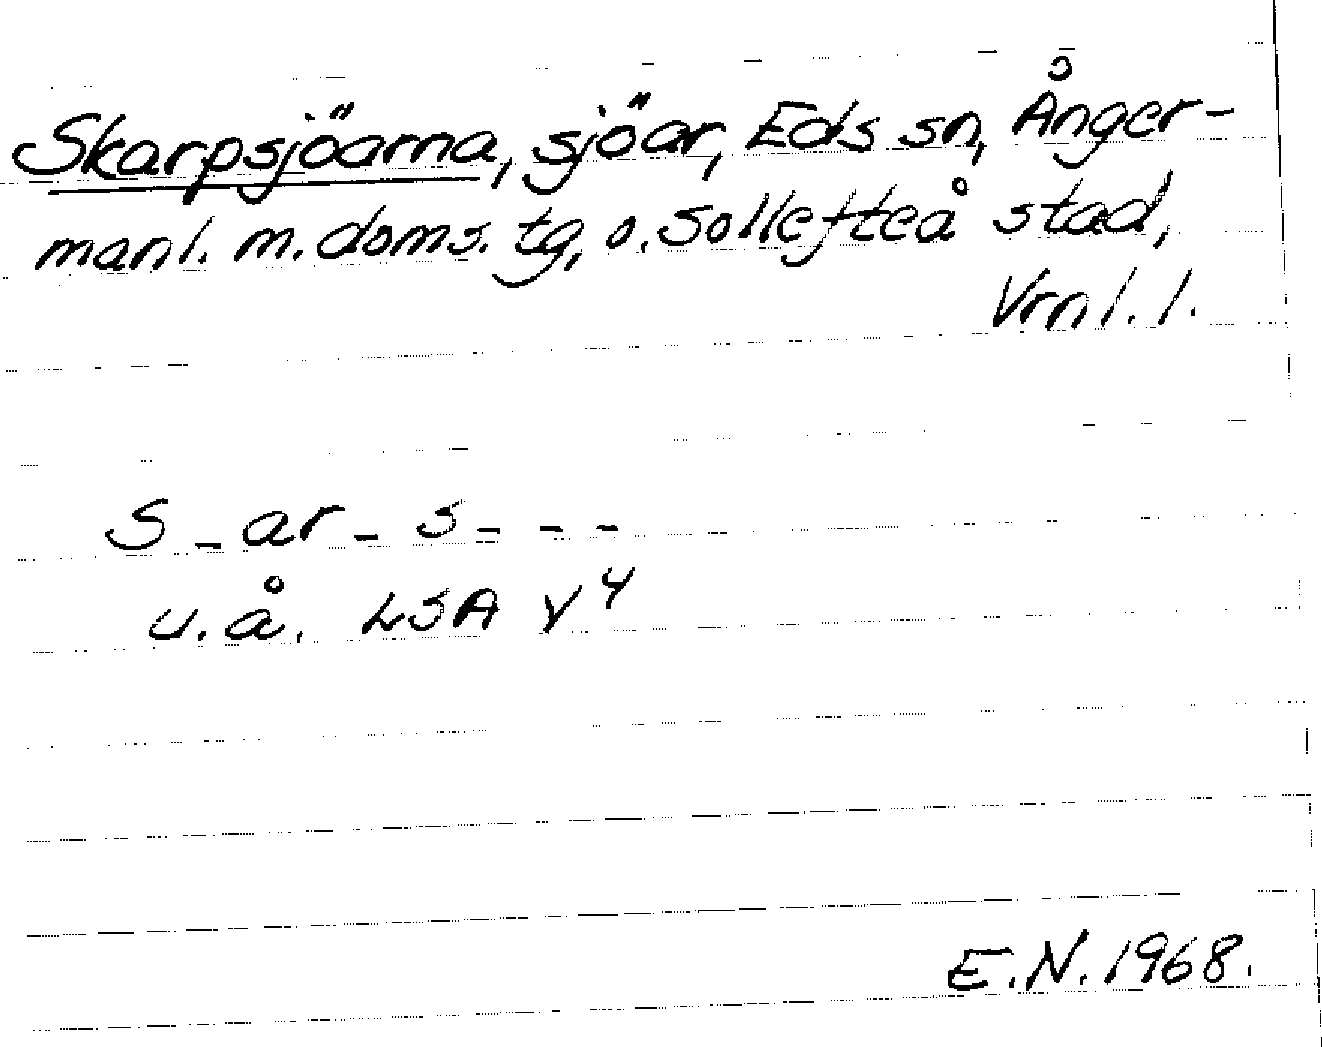 Skarpsjöarna, sjöar, Eds sn, Ånger-
manl. m. doms. tg, o. Sollefteå stad,
Vrnl. l.
S_ar_ s- - -
u.å. LSA Y⁴
E.N. 1968.